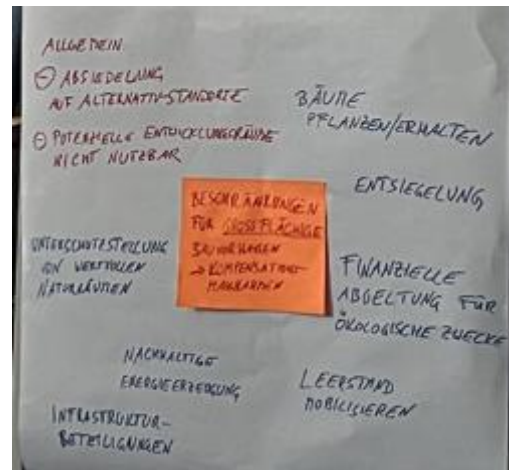 ALLGEMEIN
⊖ ABSIEDELUNG
AUF ALTERNATIV-STANDORTE
⊖ POTENZIELLE ENTWICKLUNGSRÄUME
NICHT NUTZBAR
BÄUME
PFLANZEN/ERHALTEN
ENTSIEGELUNG
BESCHRÄNKUNGEN
FÜR GROSSFLÄCHIGE
BAUVORHABEN
→ KOMPENSATIONS-
MAßNAHMEN
UNTERSCHUTZSTELLUNG
VON WERTVOLLEN
NATURRÄUMEN
FINANZIELLE
ABGELTUNG FÜR
ÖKOLOGISCHE ZWECKE
NACHHALTIGE
ENERGIEERZEUGUNG
LEERSTAND
MOBILISIEREN
INFRASTRUKTUR-
BETEILIGUNGEN